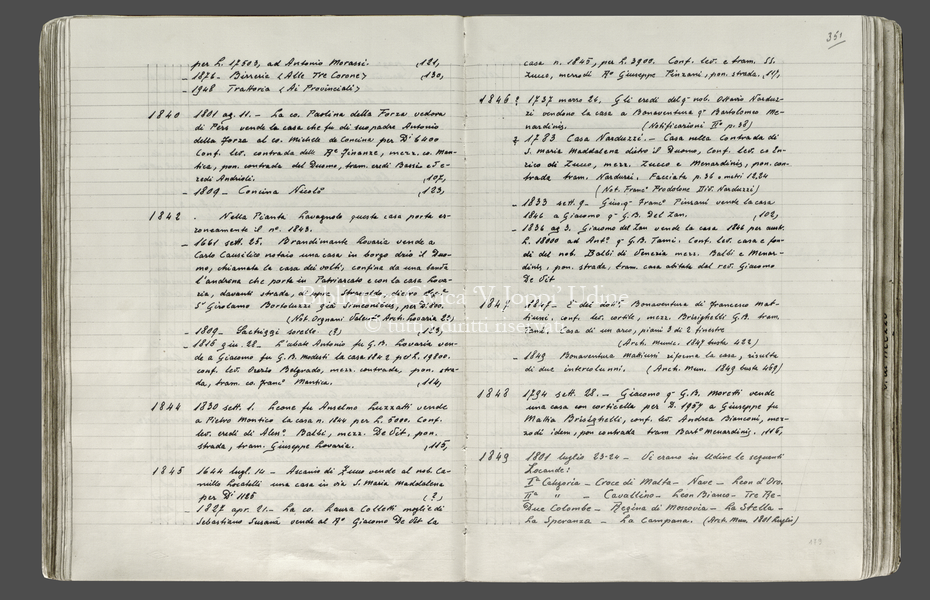 per L. 17503, ad Antonio Morassi. ,121,
– 1876 – Birreria <Alle Tre Corone> ,130,
1948 Trattoria <Ai Provinciali>
1840 1801 ag. 11. – La co. Paolina della Forza vedova
di Pers vende la casa che fu di suo padre Antonio
della Forza al co. Michele de Concina per Di 6400
Conf. lev. contrada delle Re Finanze, mezz. co. Man-
tica, pon. contrada del Duomo, tram. eredi Bassi e
redi Andrioli. ,107,
– 1809 – Concina Nicolò ,123,
1842 . Nella Pianta Lavagnolo questa casa porta er-
roneamente il n°. 1843.
– 1661 sett. 25. Brandimante Lovaria vende a
Carlo Causilico notaio una casa in borgo drio il Duo-
mo, chiamata la casa dei volti, confina da una banda
l'androna che porta in Patriarcato e con la casa Lova-
ria, davanti strada,
Sr Girolamo Bortoluzzi già Simeonibus, per D.
(Not. Orgnani Valerio Arch. Lovaria 2°)
– 1809 – Sartriggi sorelle (?) ,123,
– 1816 giu. 28 – L'abate Antonio fu G.B. Lovaria ven-
de a Giacomo fu G.B. Modesti la casa 1842 per L. 19800.
conf. lev. Orazio Belgrado, mezz. contrada, pon. stra-
da, tram. co. Franco Mantica. ,114,
1844 1830 sett. 1. Leone fu Anselmo Luzzatti vende
a Pietro Montico la casa n. 1844 per L. 5000. Conf.
lev. eredi di Aleno Balbi, mezz. De Vit, pon.
strada, tram. Giuseppe Lovaria. ,115,
1845 1644 lugl. 14 – Ascanio di Zucco vende al nob. Ca-
millo Locatelli una casa in via S. Maria Maddalena
per Di 1125 (?)
– 1827 apr. 21. – La co. Laura Collotti moglie di
Sebastiano Susanà vende al Ro Giacomo De Vit la
351
casa n. 1845, per L. 3900. Conf. lev. e tram. SS.
Zucco, mezzodì Ro Giuseppe Pinzani, pon. strada. ,111,
1846 ? 1737 marzo 26, Gli eredi del q. nob. Ottavio Narduz-
zi vendono la casa a Bonaventura q. Bartolomeo Me-
nardinis. (Notificazioni IIa p. 38)
? 1783 Casa Narduzzi. – Casa nella Contrada di
S. Maria Maddalena dietro il Duomo, conf. lev. co En-
rico di Zucco, mezz. Zucco e Menardinis, pon. con-
trada tram. Narduzzi. Facciata p. 36 = metri 12,24
(Not. Franco Prodolone Div. Narduzzi)
– 1833 sett. 9 – Gius. q. Franco Pinzani vende la casa
1846 a Giacomo q. G.B. Del Zan. ,102,
– 1836 ag. 3. Giacomo del Zan vende la casa 1846 per aust.
L. 18000 ad Anto q. G.B. Tami. Conf. lev. casa e fon-
di del nob. Balbi di Venezia mezz. Balbi e Menar-
dinis, pon. strada, tram. casa abitata dal rev. Giacomo
De Vit
1847 – È del nob. Bonaventura di Francesco Mat-
tiussi. conf. lev. cortile, mezz. Brisighelli G.B. tram.
Casa di un arco, piani 3 di 2 finestre
(Arch. Munic. 1847 busta 422)
– 1849 Bonaventura Mattiussi riforma la casa, risulta
di due intercolunni. (Arch. Mun. 1849 busta 469)
1848 1794 sett. 28. – Giacomo q. G.B. Moretti vende
una casa con corticella per D. 1957 a Giuseppe fu
Mattia Brisighelli, conf. lev. Andrea Bianconi, mez-
zodì idem, pon contrada tram Barto Menardinis. ,116,
1849 1801 luglio 23-24 – Vi erano in Udine le seguenti
Locande:
Ia Categoria – Croce di Malta – Nave – Leon d'Oro.
IIa " – Cavallino – Leon Bianco – Tre Re –
Due Colombe – Regina di Moscovia – La Stella –
La Speranza – La Campana. (Arch. Mun. 1801 luglio)
Biblioteca Civica "V. Joppi" Udine
© tutti i diritti riservati